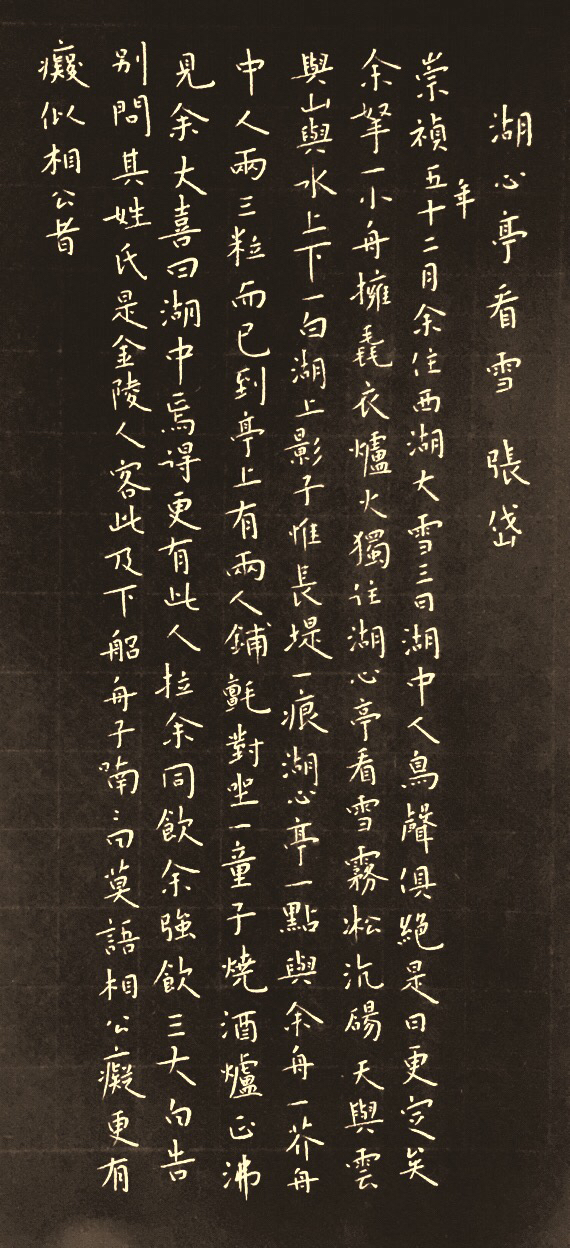 湖心亭看雪 張岱
崇禎五年十二月余住西湖大雪三日湖中人鳥聲俱絕是日更定矣
余拏一小舟擁毳衣爐火獨往湖心亭看雪霧凇沆碭天與雲
與山與水上下一白湖上影子惟長堤一痕湖心亭一點與余舟一芥舟
中人兩三粒而已到亭上有兩人鋪氈對坐一童子燒酒爐正沸
見余大喜曰湖中焉得更有此人拉余同飲余強飲三大白告
別問其姓氏是金陵人客此及下船舟子喃々曰莫語相公癡更有
癡似相公者